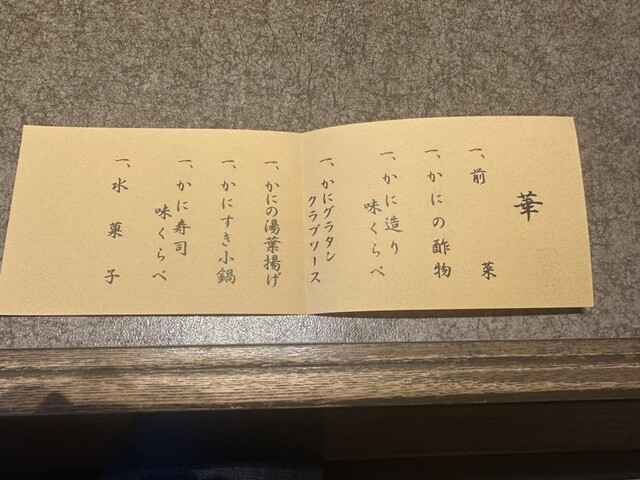 華
一、前菜
一、かにの酢物
一、かに造り
味くらべ
一、かにグラタン
クラブソース
一、かにの湯葉揚げ
一、かにすき小鍋
一、かに寿司
味くらべ
一、水菓子